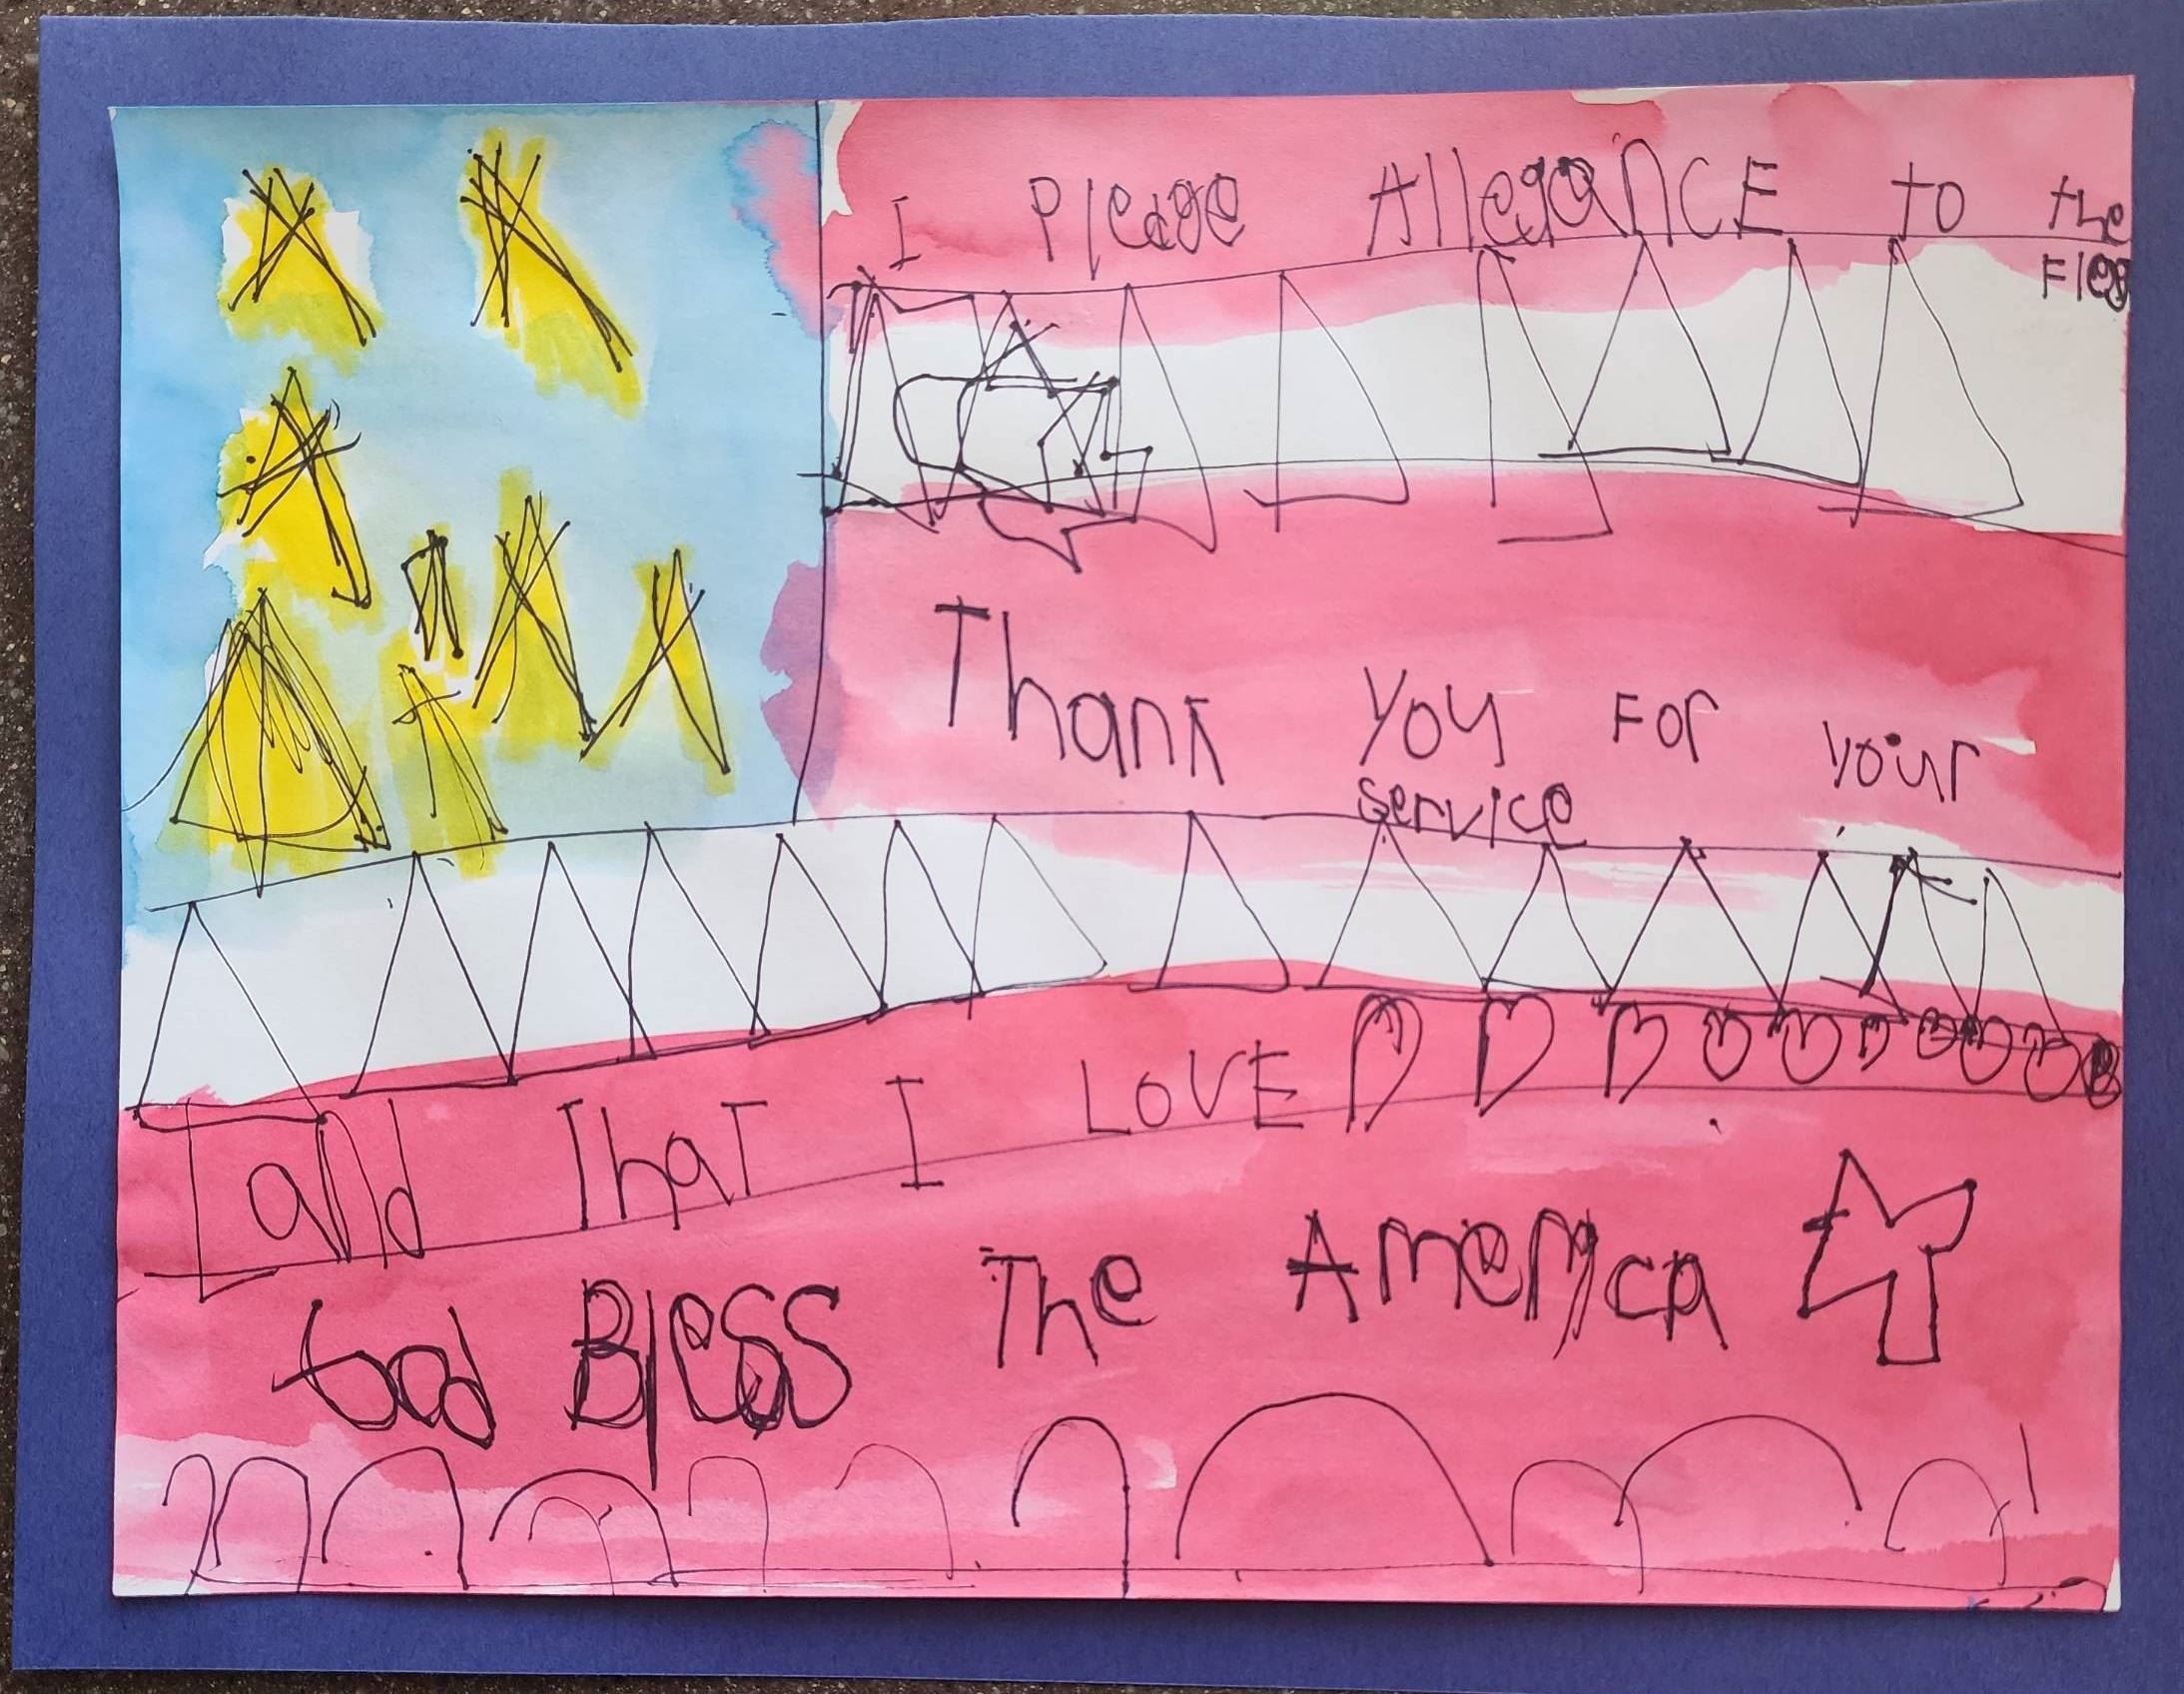 I Pledge AllegaNCE to the
Fleg
Thank You For your
service
and That I LOVE
God Bless The America